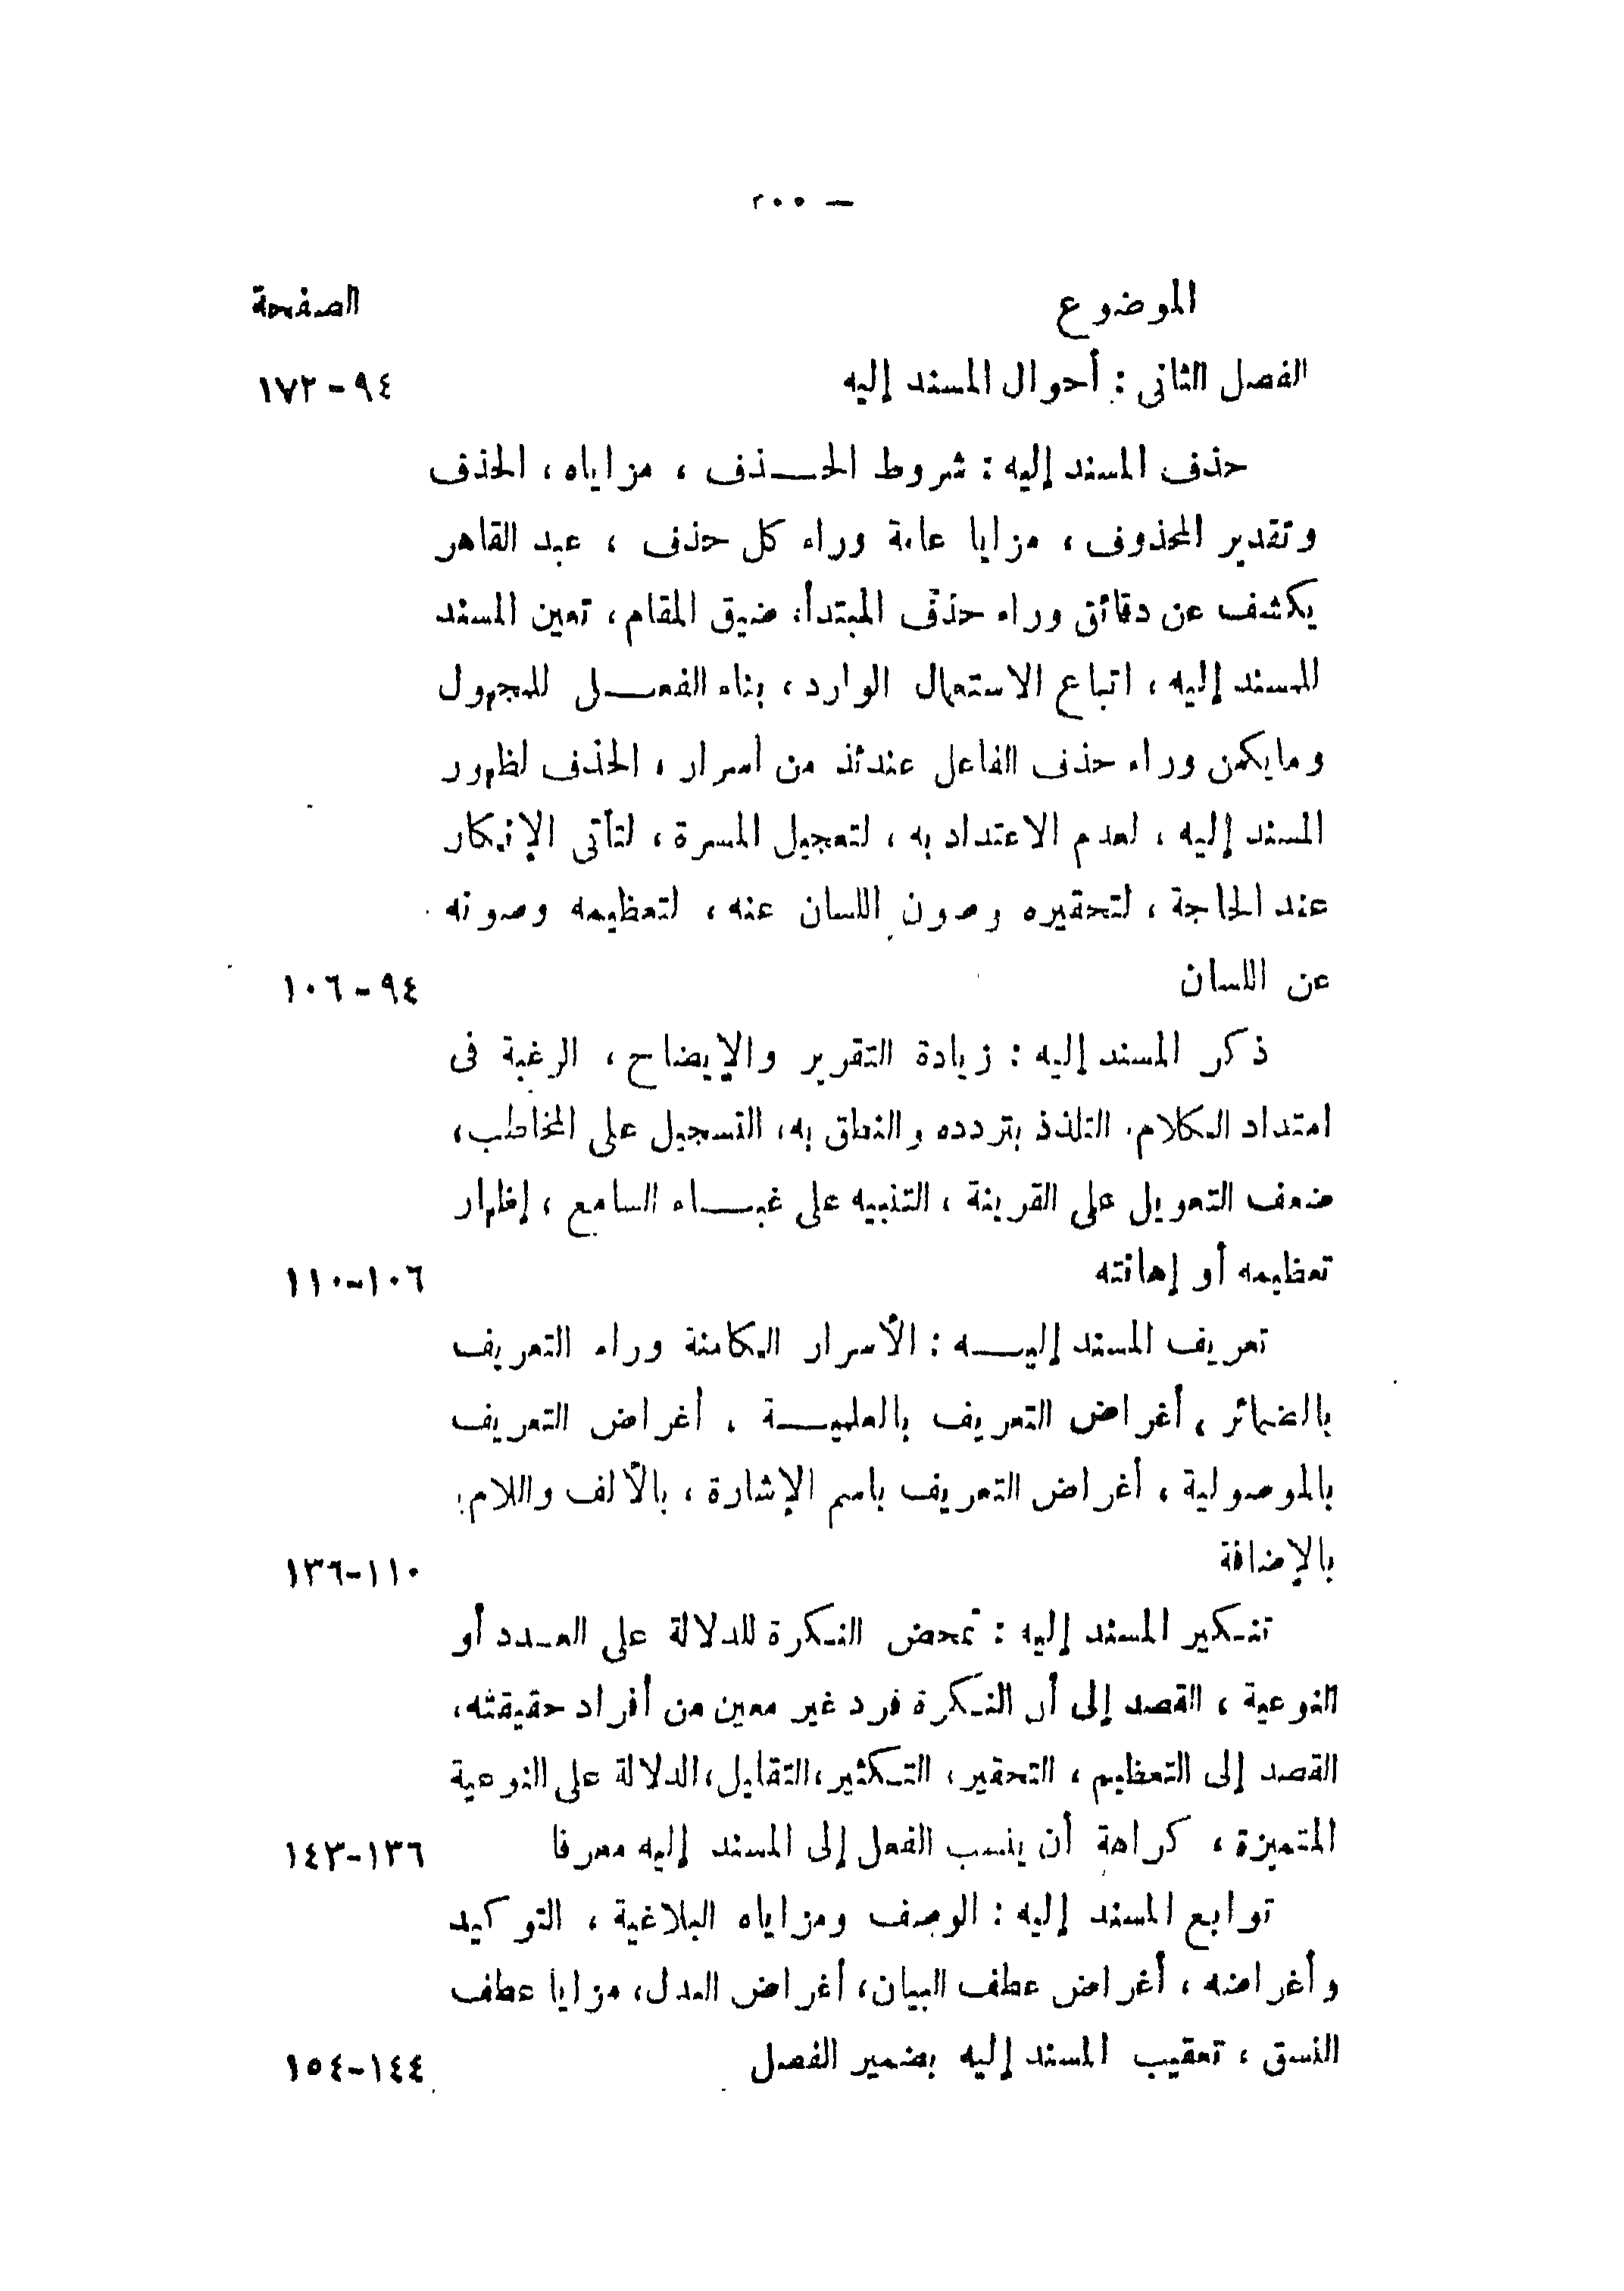 — ٢٠٠
الموضوع الصفحة
الفصل الثانى : أحوال المسند إليه ٩٤-١٧٢
حذف المسند إليه : شروط الحــذف ، مزاياه ، الحذف
وتقدير المحذوف ، مزايا عامة وراء كل حذف ، عبد القاهر
يكشف عن دقائق وراء حذف المبتدأ، ضيق المقام ، تعين المسند
للمسند إليه ، اتباع الاستعمال الوارد ، بناء الفعــل للمجهول
وما يكمن وراء حذف الفاعل عندئذ من أسرار ، الحذف لظهور
المسند إليه ، لعدم الاعتداد به ، لتعجيل المسرة ، لتأتى الإنكار
عند الحاجة ، لتحقيره وصون اللسان عنه ، لتعظيمه وصونه
عن اللسان ٩٤-١٠٦
ذكر المسند إليه : زيادة التقرير والإيضاح ، الرغبة فى
امتداد الكلام، التلذذ بتردده والنطق به، التسجيل على المخاطب،
ضعف التعويل على القرينة ، التنبيه على غبــاء السامع ، إظهار
تعظيمه أو إهانته ١٠٦-١١٠
تعريف المسند إليــه : الأسرار الكامنة وراء التعريف
بالضمائر ، أغراض التعريف بالعلميــة ، أغراض التعريف
بالموصولية ، أغراض التعريف باسم الإشارة ، بالألف واللام،
بالإضافة ١١٠-١٣٦
تنكير المسند إليه : تمحض النكرة للدلالة على العـدد أو
النوعية ، القصد إلى أن النكرة فرد غير معين من أفراد حقيقته،
القصد إلى التعظيم ، التحقير ، التكثير ،التقليل ،الدلالة على النوعية
المتميزة ، كراهة أن ينسب الفعل إلى المسند إليه معرفا ١٣٦-١٤٣
توابع المسند إليه : الوصف ومزاياه البلاغية ، التوكيد
وأغراضه ، أغراض عطف البيان، أغراض البدل، مزايا عطف
النسق ، تعقيب المسند إليه بضمير الفصل ١٤٤-١٥٤